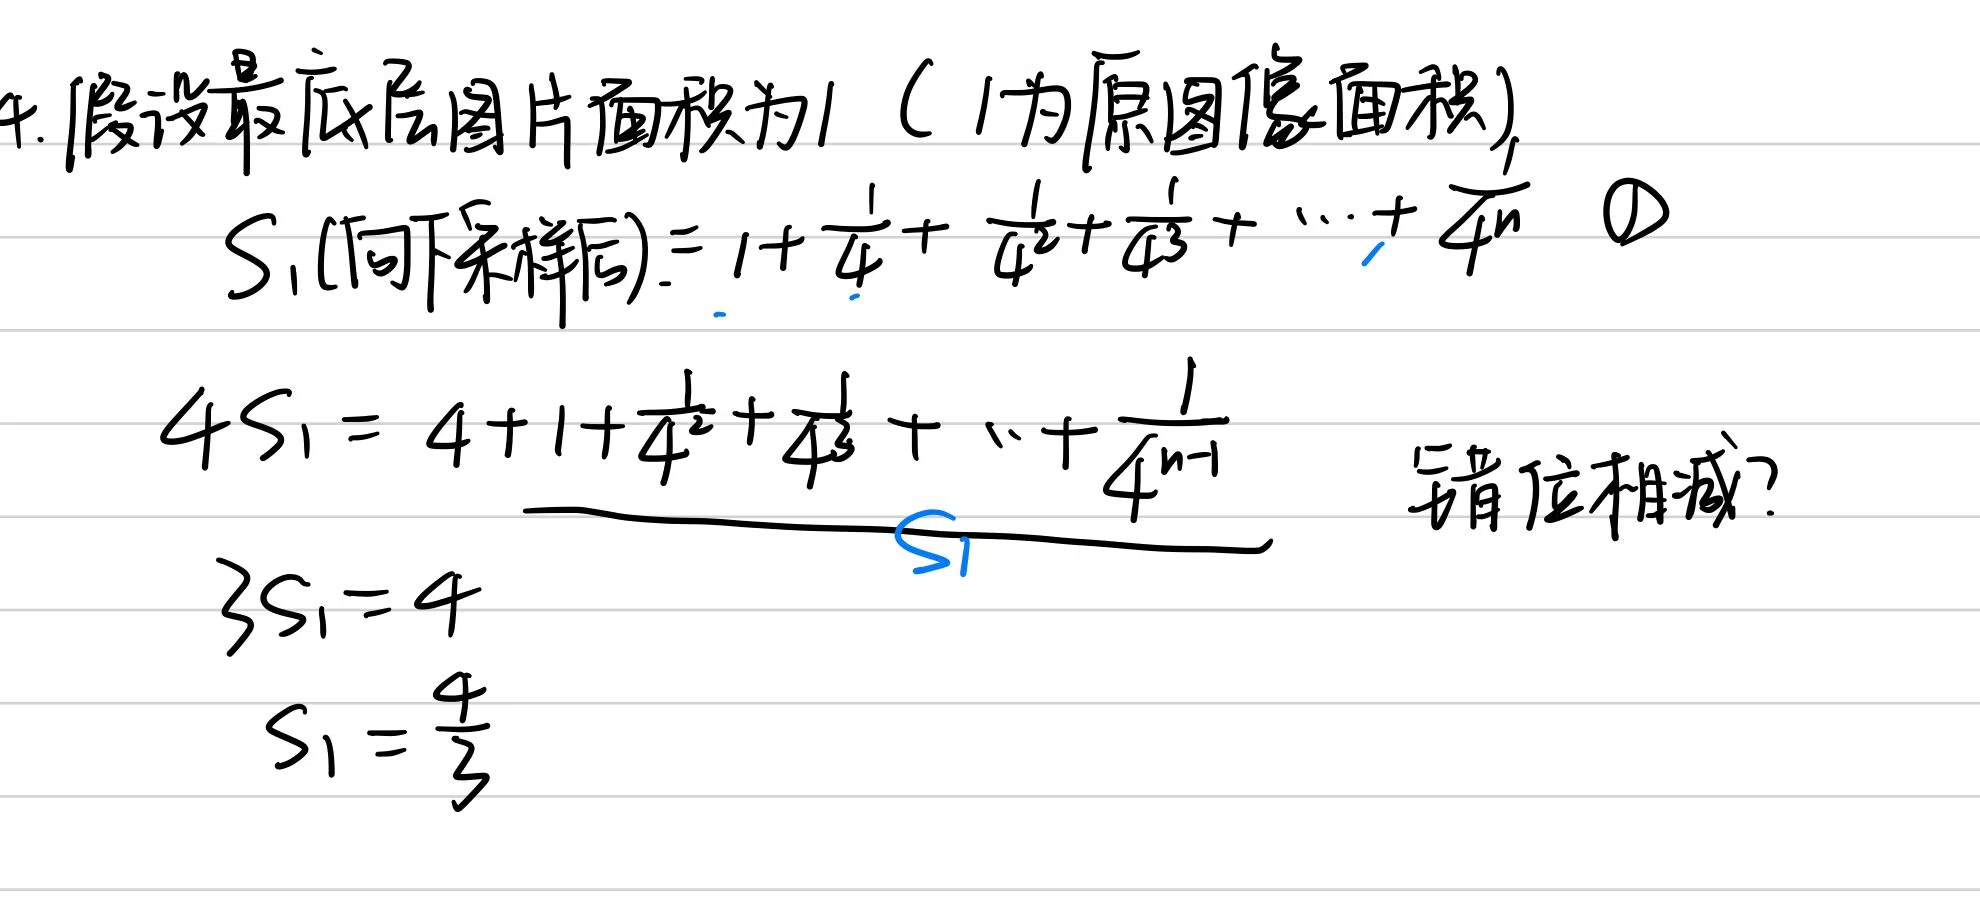 4. 假设最底层图片面积为1 (1为原图像面积)
S₁(向下采样后) = 1 + 1/4 + 1/4² + 1/4³ + ⋯ + 1/4ⁿ ①
4S₁ = 4 + 1 + 1/4² + 1/4³ + ⋯ + 1/4ⁿ⁻¹ 错位相减?
S₁
3S₁ = 4
S₁ = 4/3